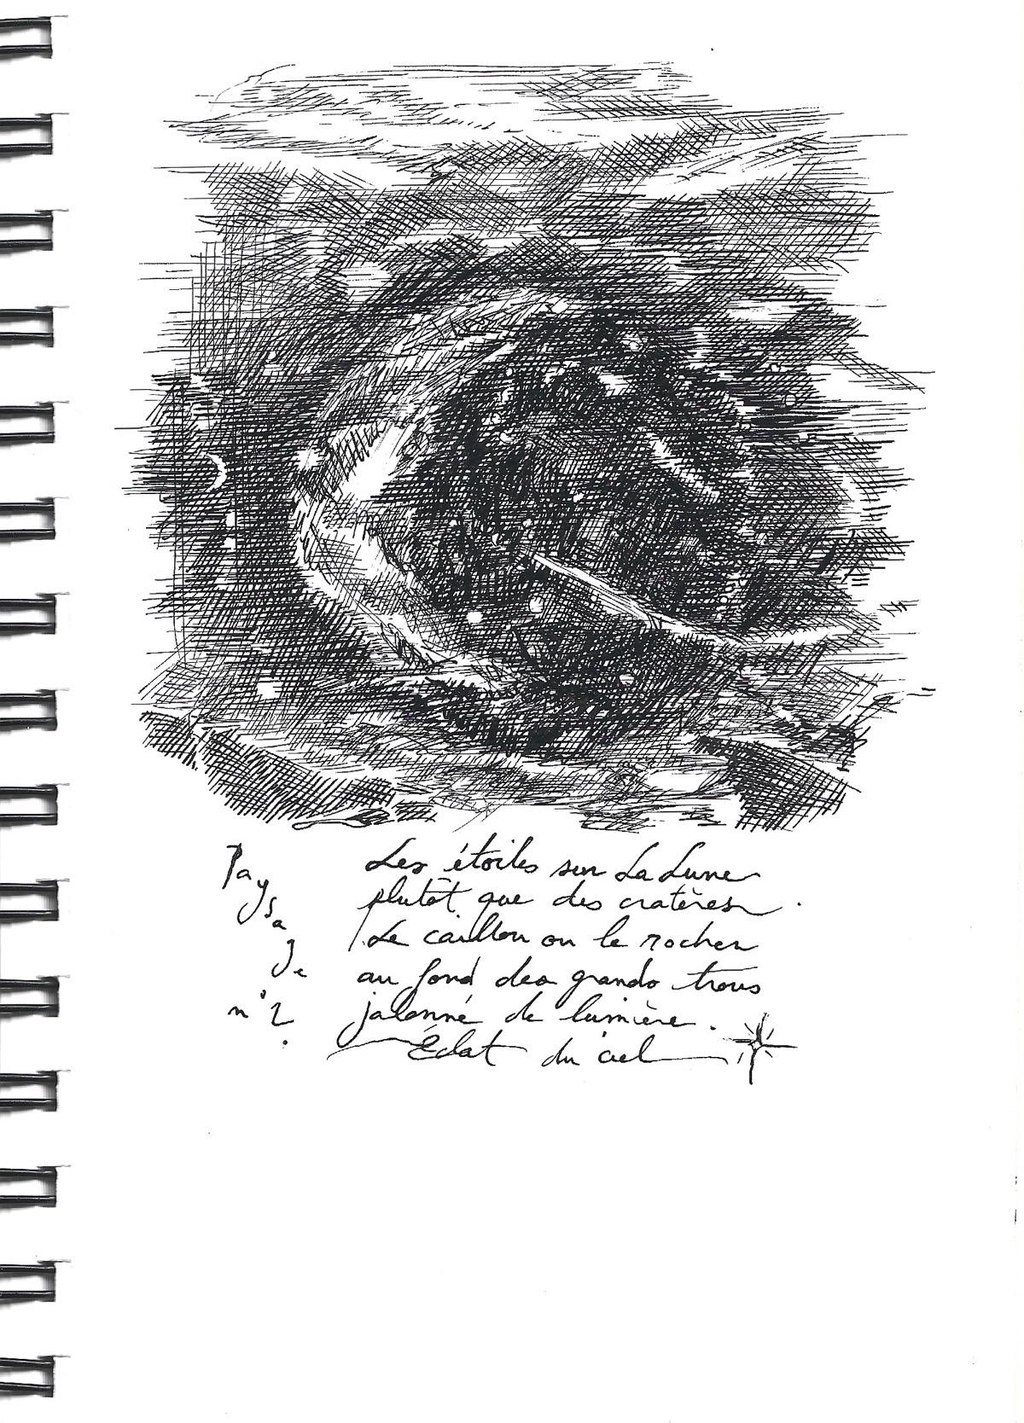 Paysage
n°2.
Les étoiles sur La Lune
plutôt que des cratères.
Le caillou ou le rocher
au fond des grands trous
jalonné de lumière.
Éclat du ciel